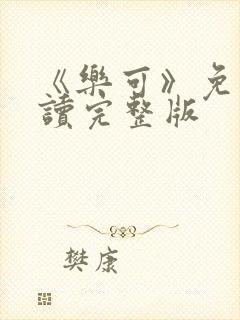 《樂可》免
讀完整版
樊康